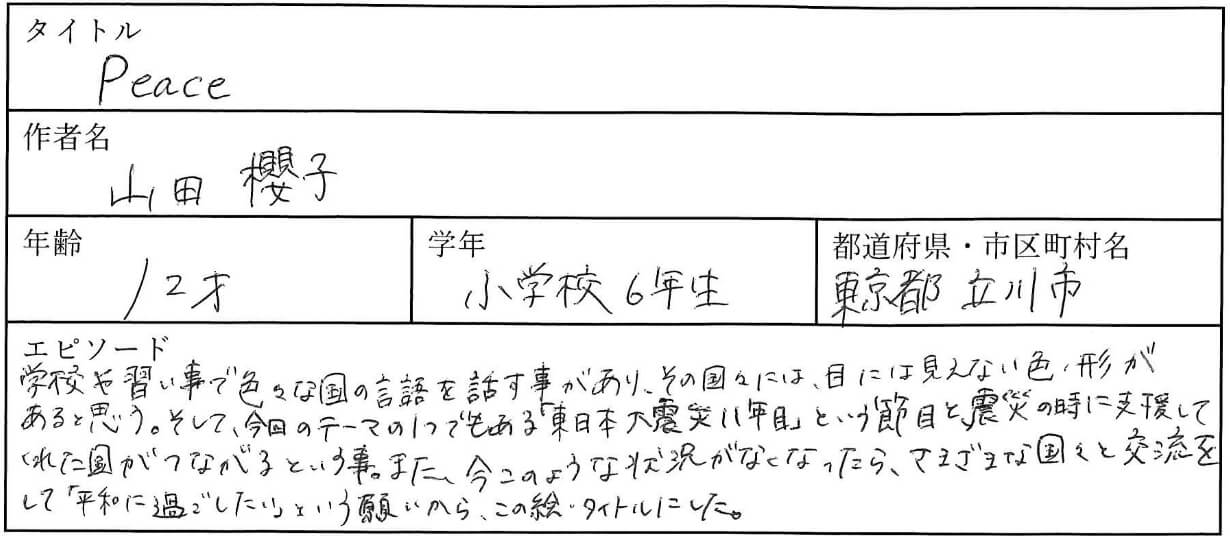 タイトル
Peace
作者名
山田 櫻子
年齢
12才
学年
小学校6年生
都道府県・市区町村名
東京都 立川市
エピソード
学校や習い事で色々な国の言語を話す事があり、その国々には、目には見えない色・形が
あると思う。そして、今回のテーマの1つでもある「東日本大震災11年目」という節目と、震災の時に支援して
くれた国がつながるという事。また、今このような状況がなくなったら、さまざまな国々と交流を
して「平和に過ごしたい」という願いから、この絵・タイトルにした。